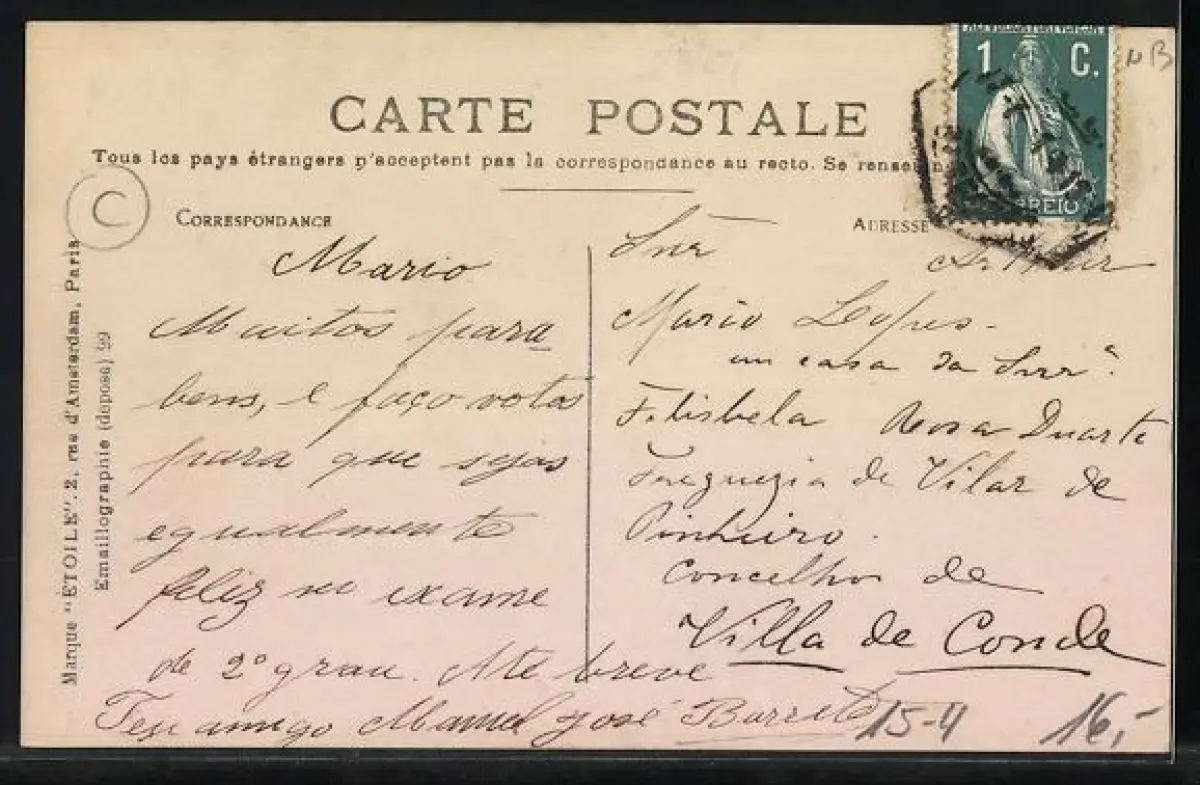 1 C.
CORREIO
NB
CARTE POSTALE
Tous les pays étrangers n'acceptent pas la correspondance au recto. Se rensei
C
CORRESPONDANCE
ADRESSE
Marque "ETOILE". 2, rue d'Amsterdam, Paris
Emaillographie (déposé) 99
Mario
Muitos para
bens, e faço votos
para que sejas
egualmente
feliz no exame
de 2º grau. Ate breve
Teu amigo Manuel José Barreto
Snr Arthur
Mario Lopes.
em casa da Snrª
Felisbela Rosa Duarte
Freguezia de Vilar de
Pinheiro.
Concelho de
Villa de Conde
15-4
16,-